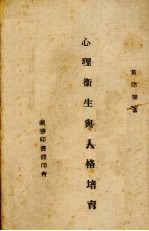 黃德馨著
心理衞生與人格培育
商務印書館印行